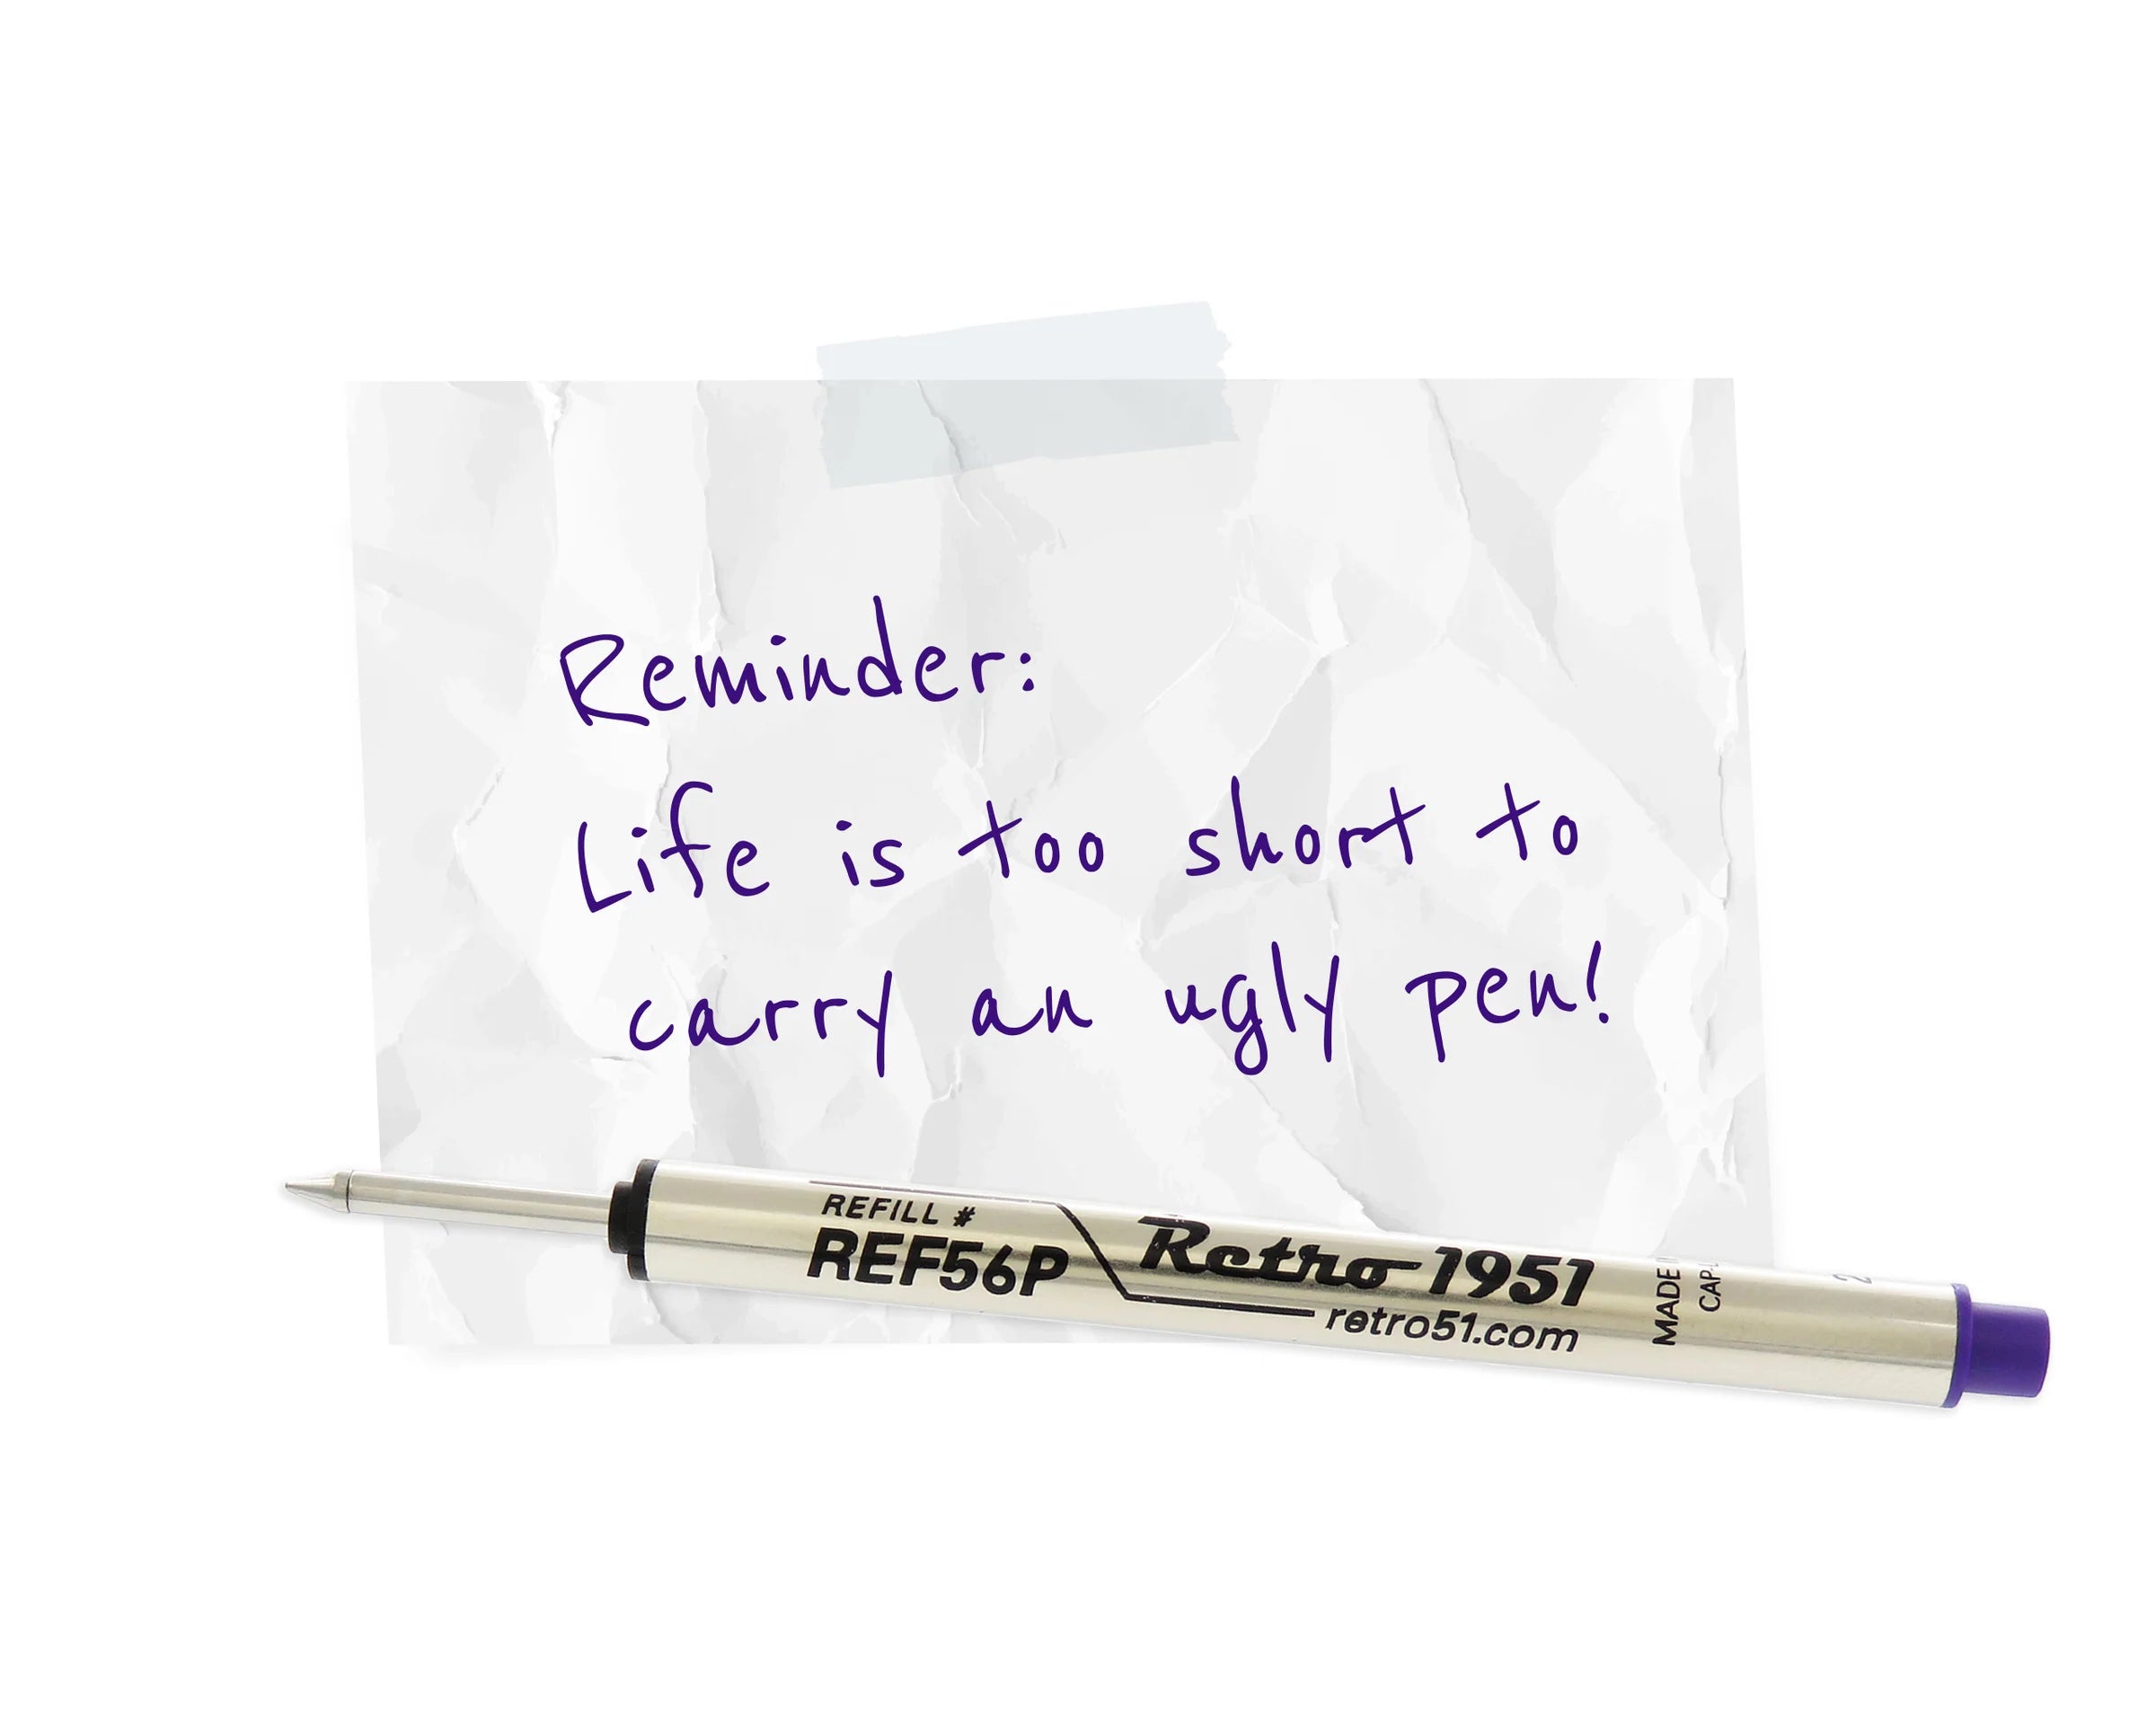 Reminder:
Life is too short to
carry an ugly pen!
REFILL #
REF56P
Retro 1951
retro51.com
MADE